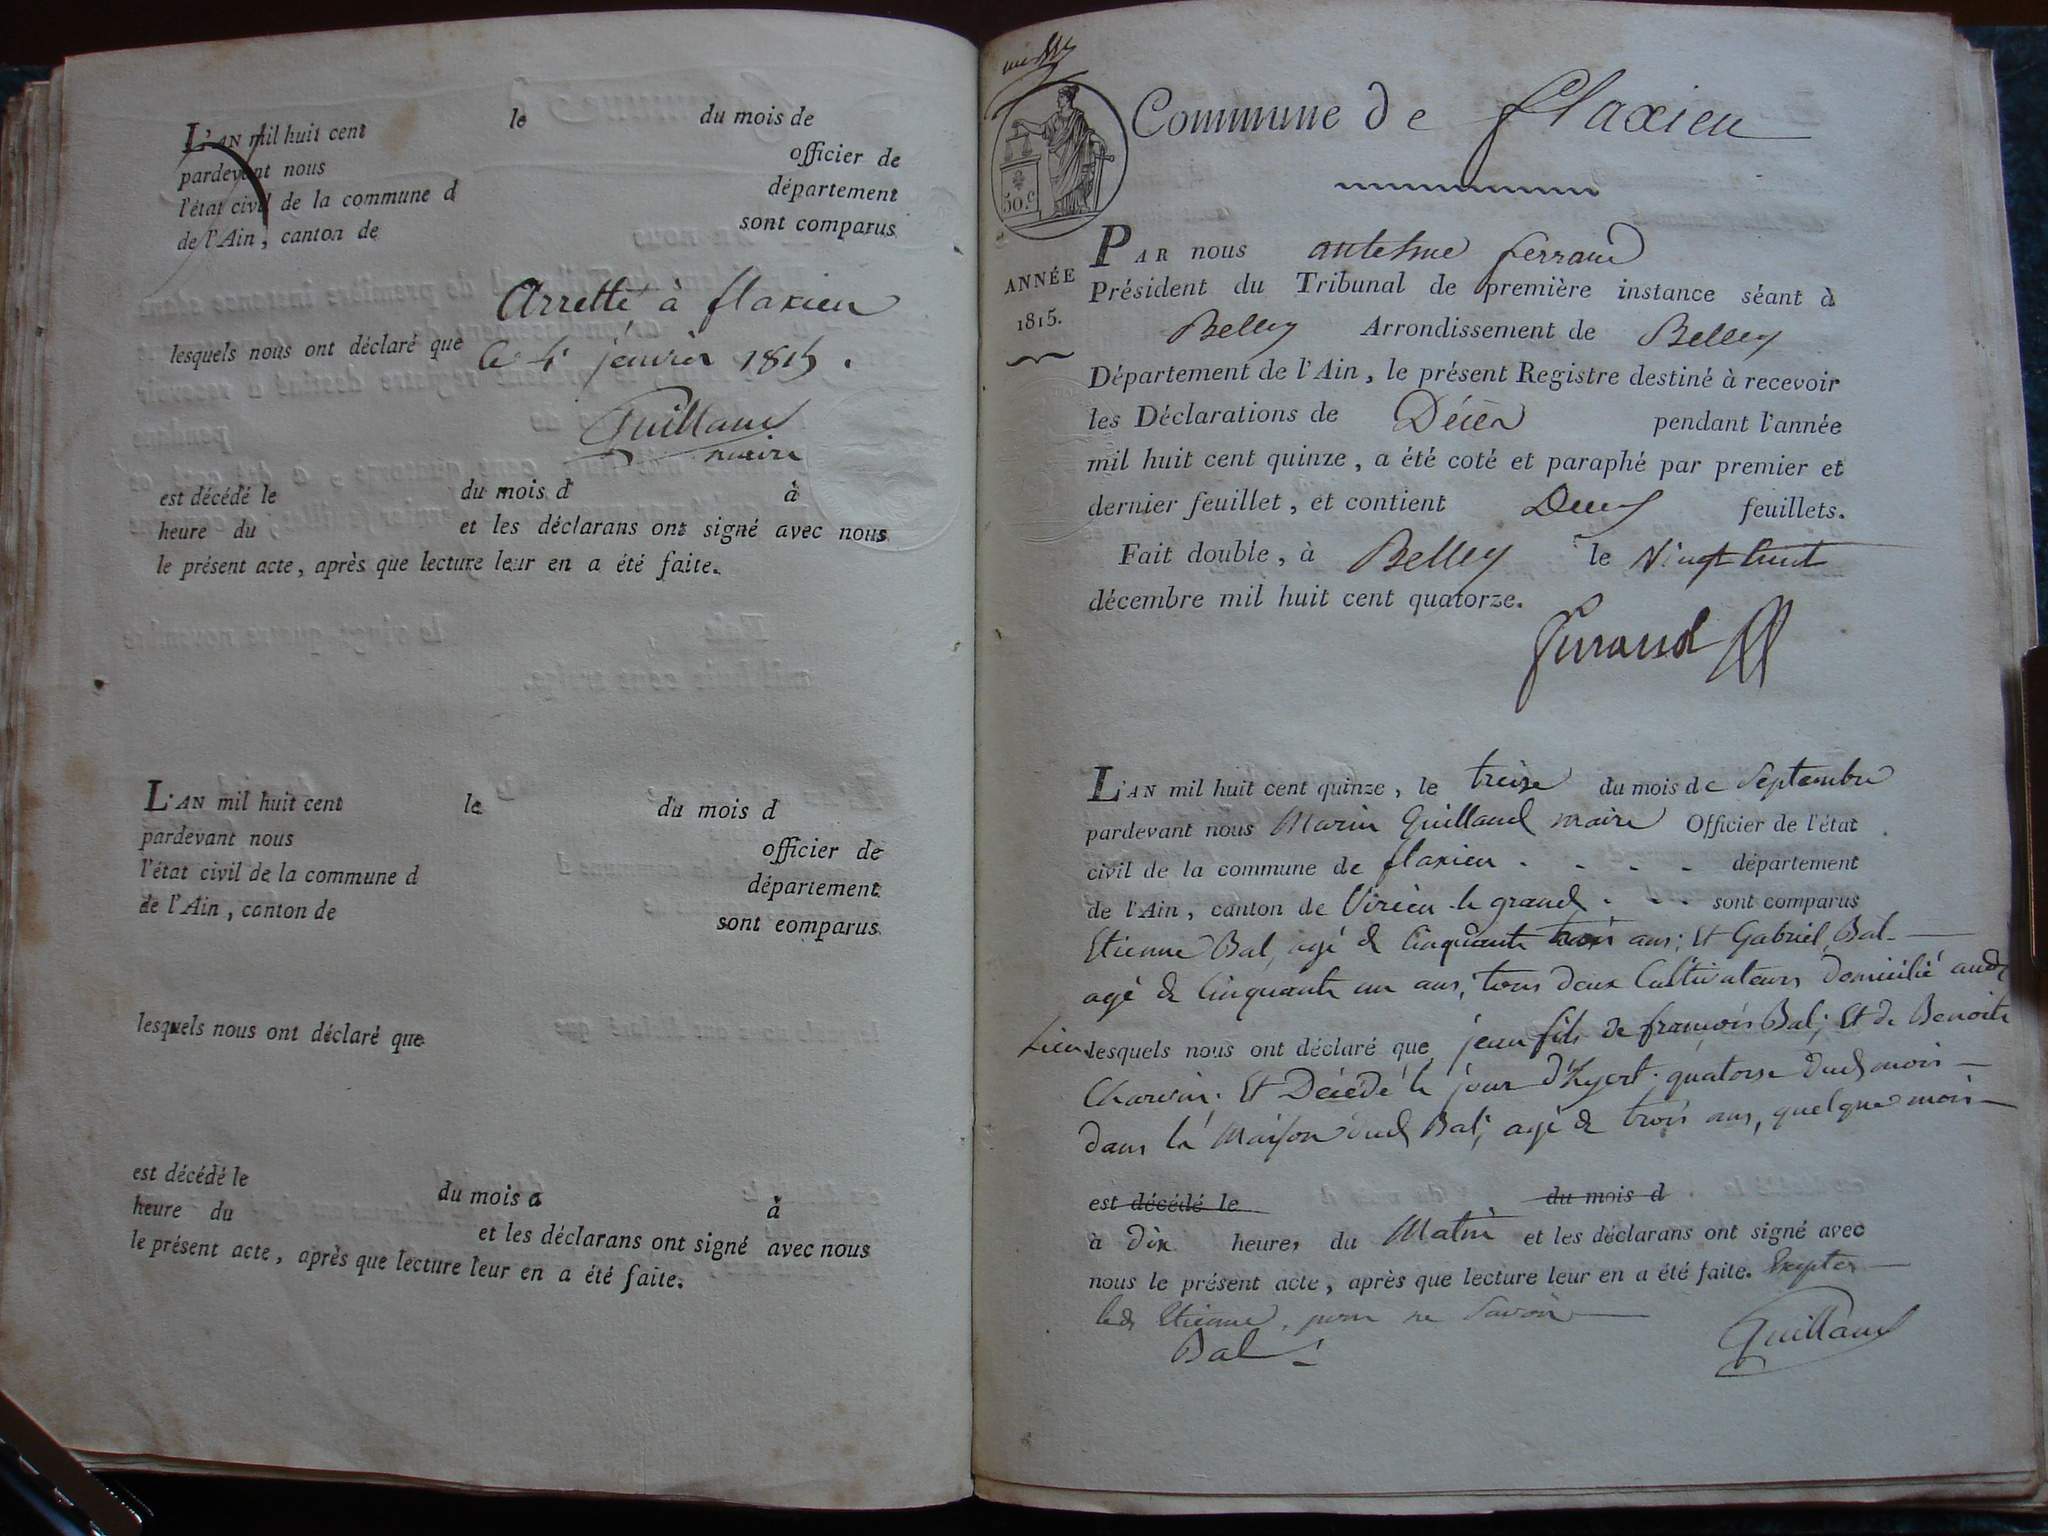 L'AN mil huit cent le du mois de
pardevant nous officier de
l'état civil de la commune d département
de l'Ain, canton de sont comparus
Arretté à flaxien
lesquels nous ont déclaré que le 4 janvier 1815.
Guilland
maire
est décédé le du mois d à
heure du et les déclarans ont signé avec nous
le présent acte, après que lecture leur en a été faite.
L'AN mil huit cent le du mois d
pardevant nous officier de
l'état civil de la commune d département
de l'Ain, canton de sont comparus
lesquels nous ont déclaré que
est décédé le du mois d
heure du à
et les déclarans ont signé avec nous
le présent acte, après que lecture leur en a été faite.
Commune de flaxieu
50.c
PAR nous antelme ferrand
ANNÉE
1815.
Président du Tribunal de première instance séant à
Belley Arrondissement de Belley
Département de l'Ain, le présent Registre destiné à recevoir
les Déclarations de Décès pendant l'année
mil huit cent quinze, a été coté et paraphé par premier et
dernier feuillet, et contient Deux feuillets.
Fait double, à Belley le Vingt huit
décembre mil huit cent quatorze.
ferrand
L'AN mil huit cent quinze, le treize du mois de Septembre
pardevant nous Marin Guilland maire Officier de l'état
civil de la commune de flaxieu . . . . département
de l'Ain, canton de Virieu le grand . . . sont comparus
Etienne Bal, agé de Cinquante trois ans; Et Gabriel Bal
agé de Cinquante un ans, tous deux Cultivateurs domicilié aud
Lieu lesquels nous ont déclaré que jean fils de françois Bal; Et de Benoite
Charvin; Et Décédé le jour d'hyert quatorse dud mois
dans la Maison dud Bal; agé de trois ans, quelque mois
est décédé le du mois d
à dix heures du Matin et les déclarans ont signé avec
nous le présent acte, après que lecture leur en a été faite. Excepter
led Etienne, pour ne Savoir
Bal Guilland